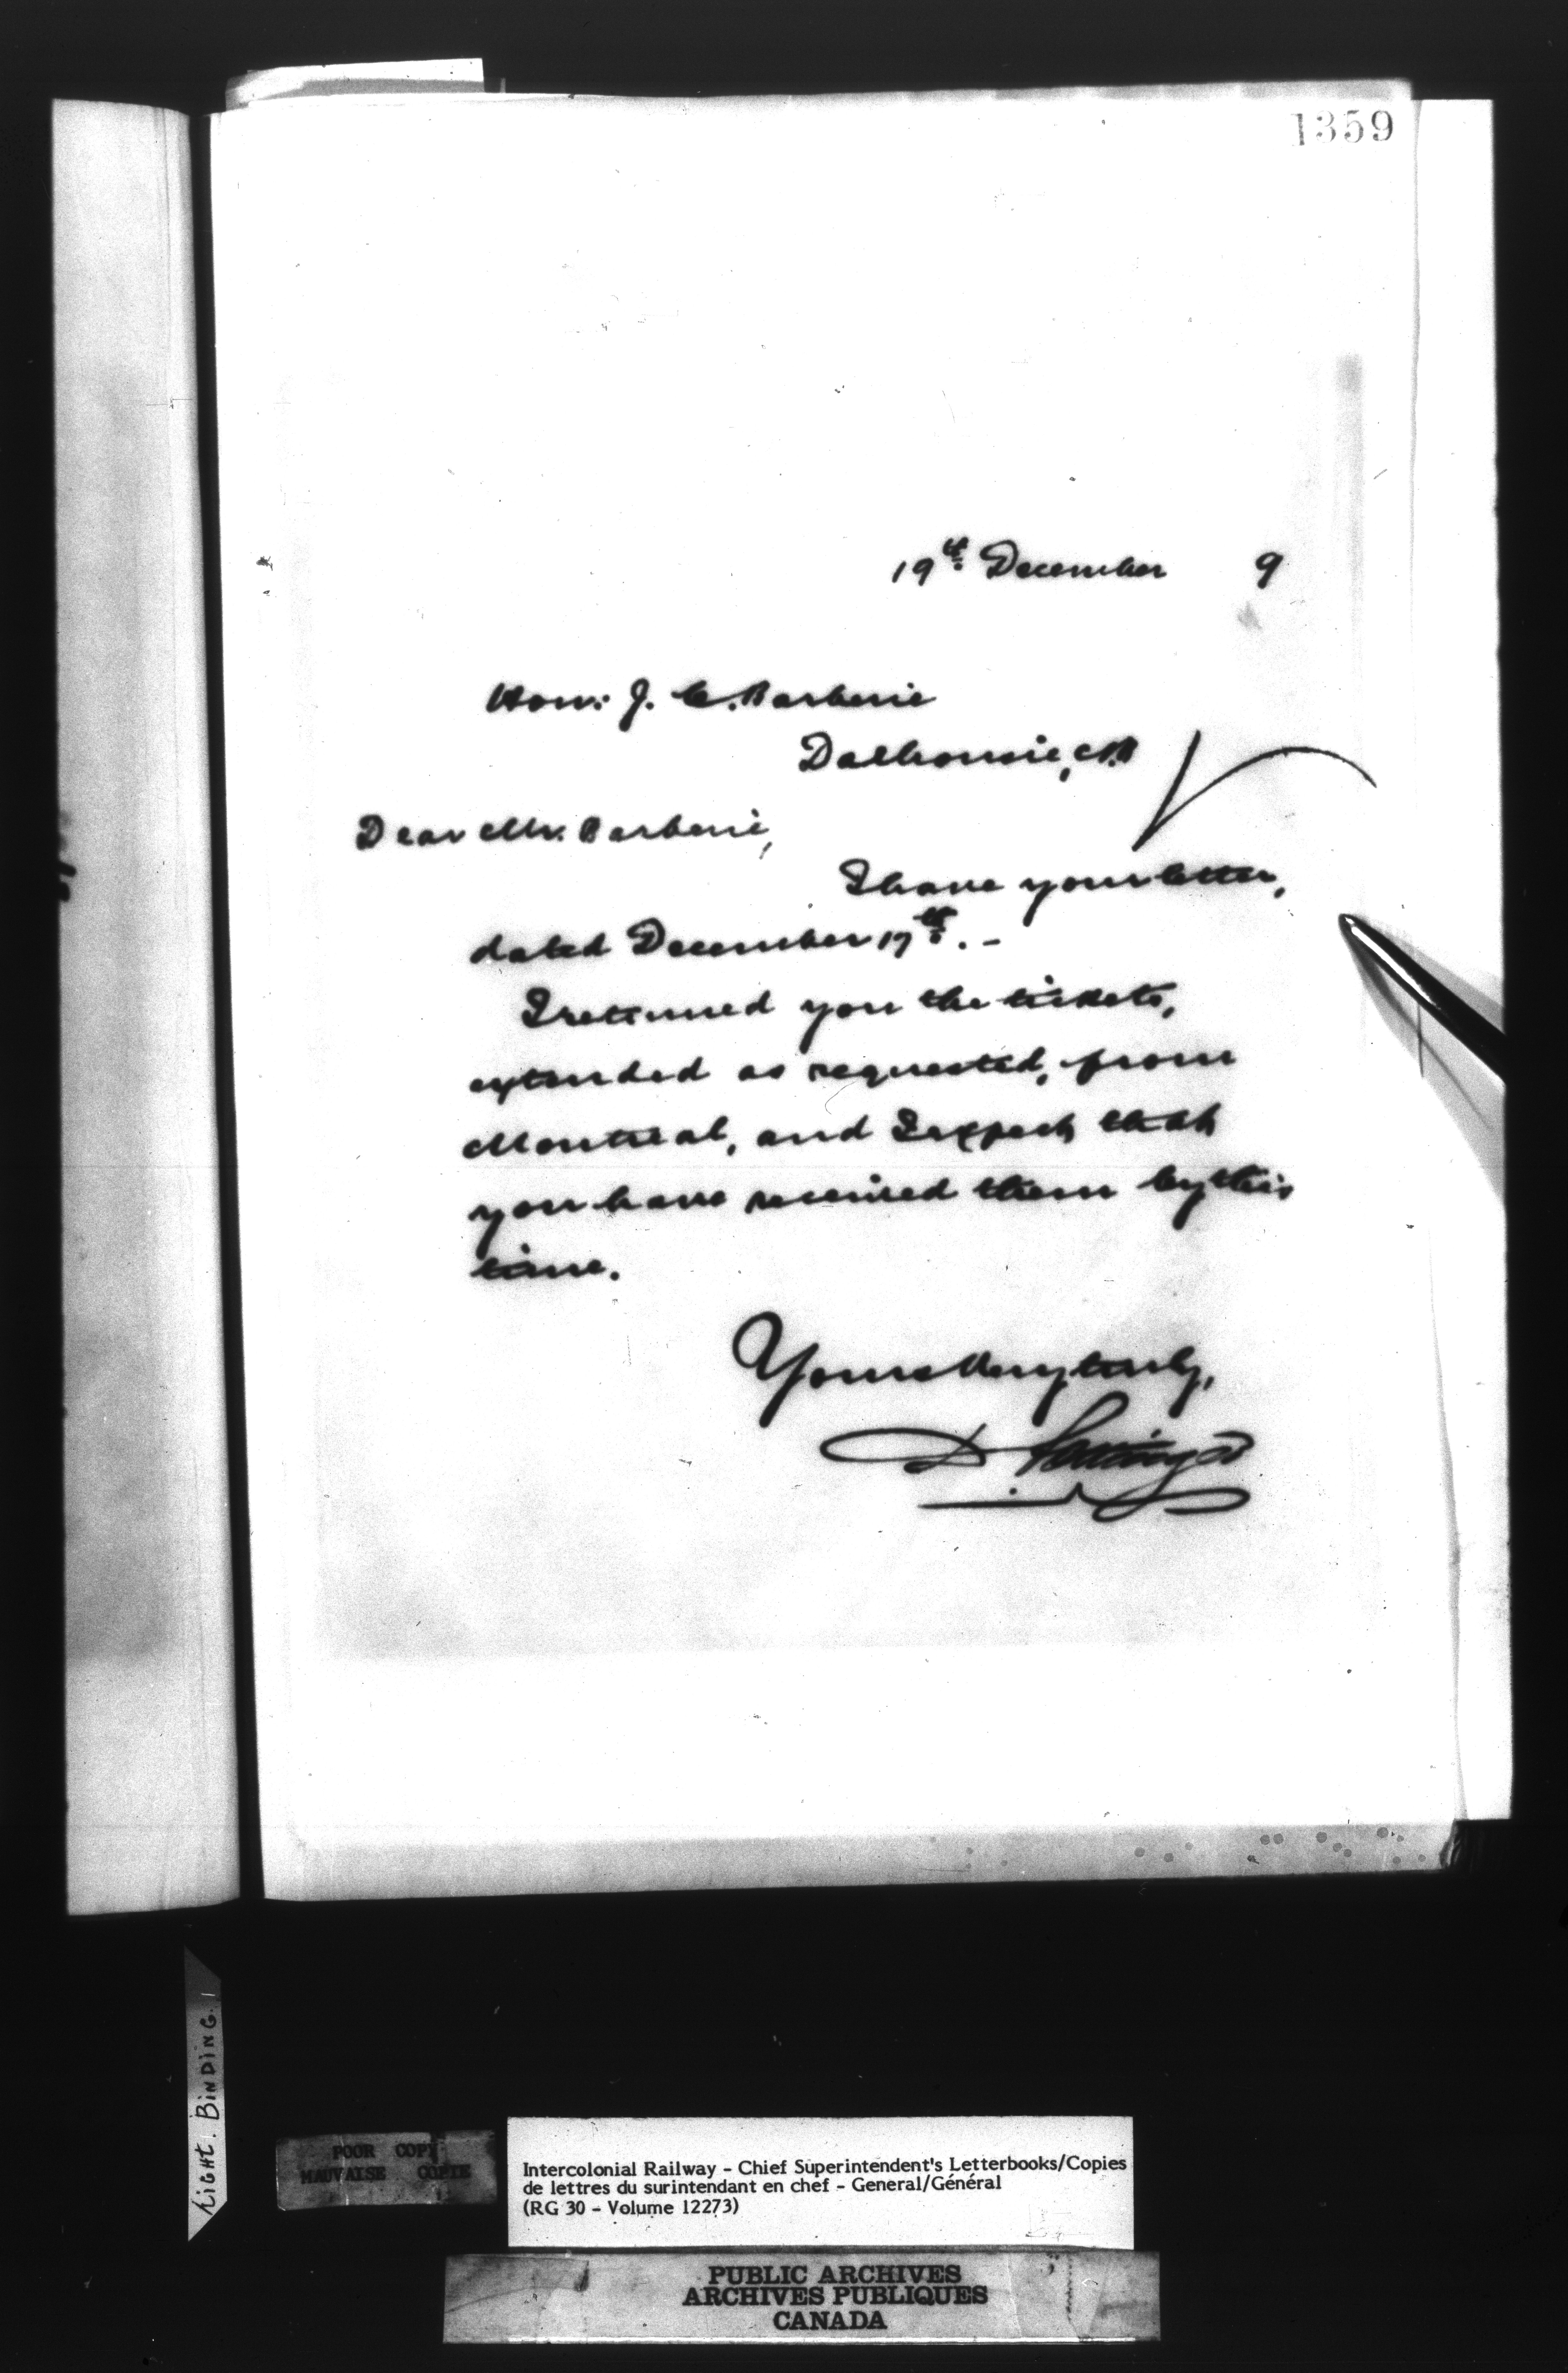 1359
19th December 9
Hon: J. C. Barberie
Dalhousie, N.B
Dear Mr. Barberie,
I have your letter,
dated December 17th. -
I returned you the tickets,
extended as requested, from
Montreal, and I expect that
you have received them by this
time.
Yours very truly,
D Pottinger
TIGHT. BINDING.
POOR COPY
MAUVAISE COPIE
Intercolonial Railway - Chief Superintendent's Letterbooks/Copies
de lettres du surintendant en chef - General/Général
(RG 30 - Volume 12273)
PUBLIC ARCHIVES
ARCHIVES PUBLIQUES
CANADA